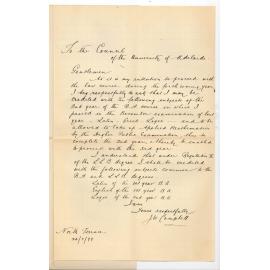 To the Council
of the University of Adelaide
Gentlemen
As it is my intention to proceed with
the law course during the forthcoming year,
I beg respectfully to ask that I may be
credited with the following subjects of the
2nd year of the B.A. course in which I
passed in the November examination of last
year - Latin, Greek, Logic - and to be
allowed to take up Applied Mathematics
in the Higher Public Examination, thus to
complete the 2nd year, & thereby be enabled
to proceed with the 3rd year.
I understand that under Regulation
of the LLB degree I shall be credited
with the following subjects common to the
B.A. and LLB degrees
Latin of the 1st year B.A.
English of the 1st year B.A.
Logic of the 2nd year B.A.
I am
Yours respectfully
J. W. Campbell
North Terrace